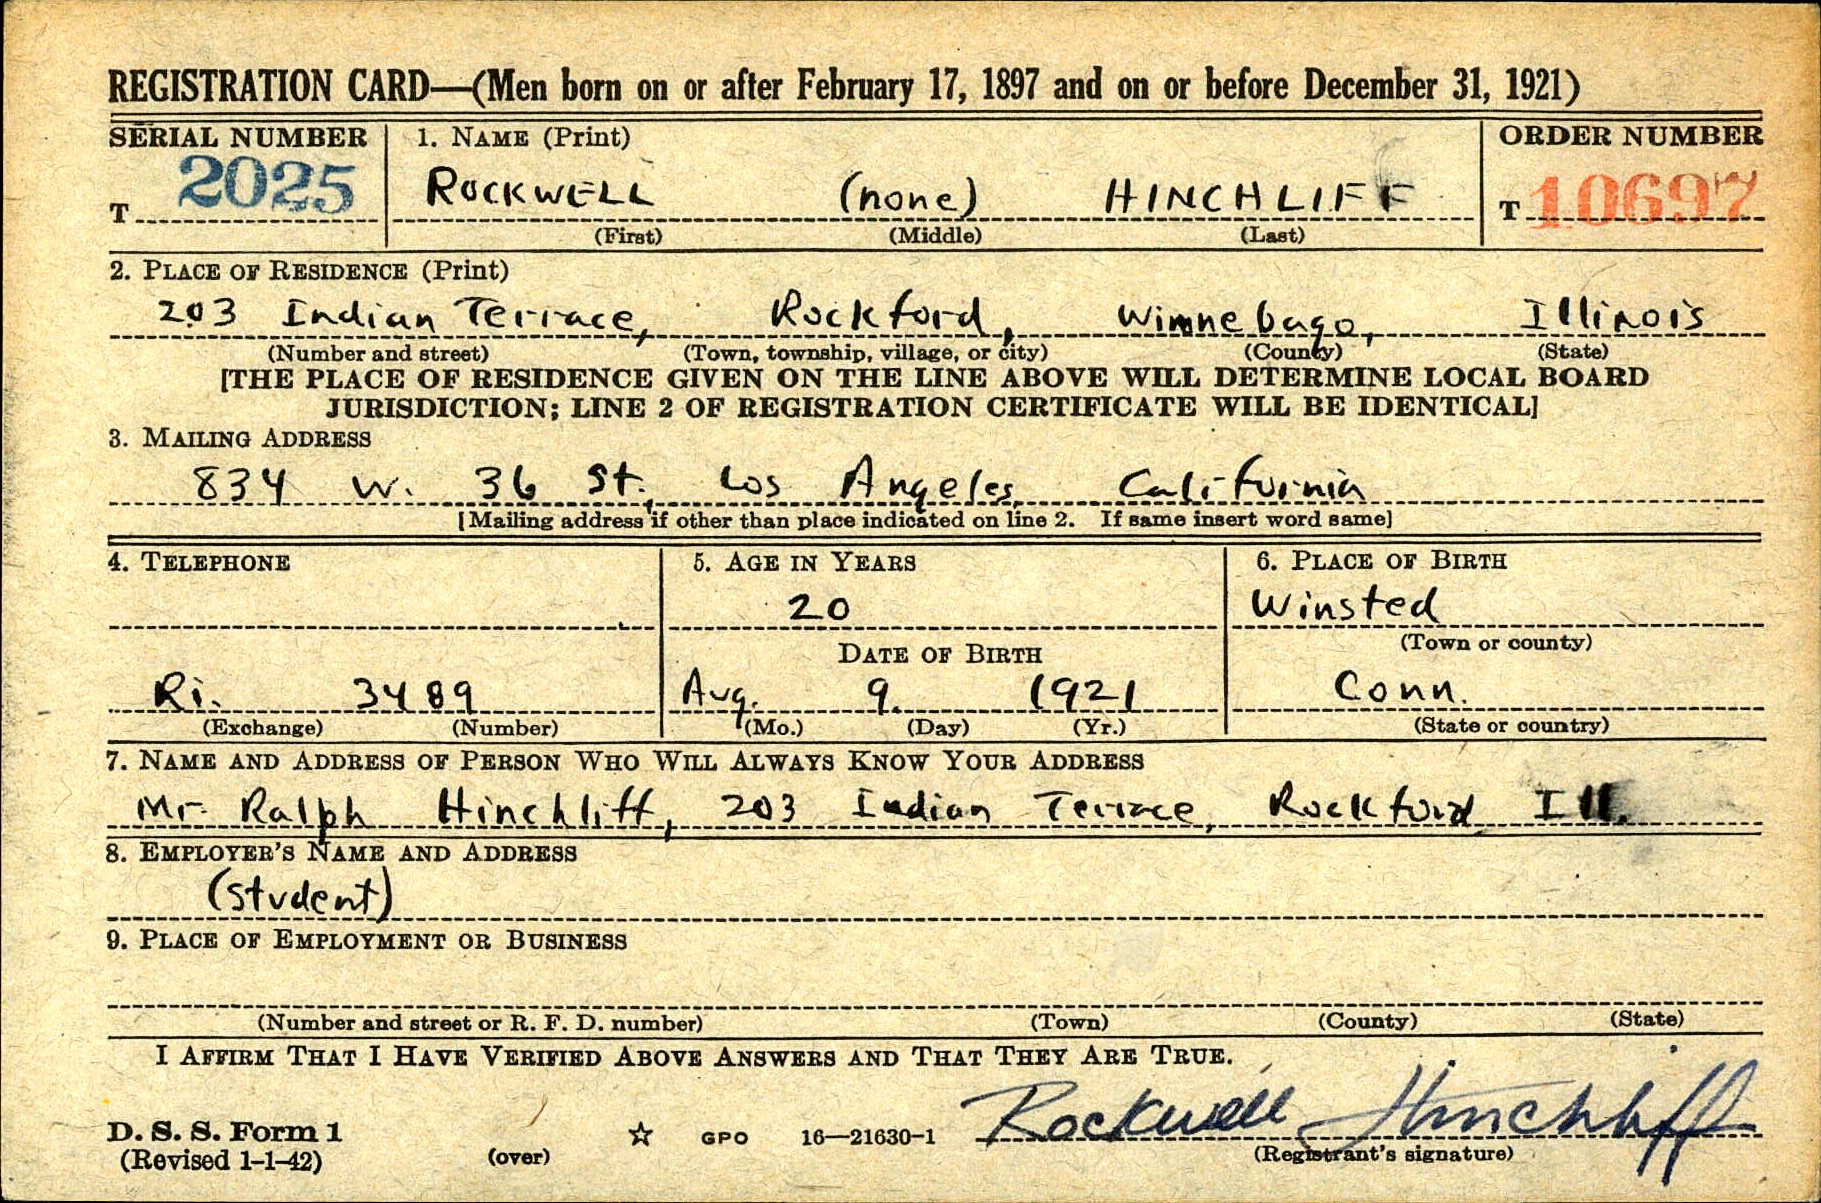 REGISTRATION CARD—(Men born on or after February 17, 1897 and on or before December 31, 1921)
SERIAL NUMBER 1. NAME (Print) ORDER NUMBER
T 2025 ROCKWELL (none) HINCHLIFF T 10697
(First) (Middle) (Last)
2. PLACE OF RESIDENCE (Print)
203 Indian Terrace, Rockford, Winnebago, Illinois
(Number and street) (Town, township, village, or city) (County) (State)
[THE PLACE OF RESIDENCE GIVEN ON THE LINE ABOVE WILL DETERMINE LOCAL BOARD
JURISDICTION; LINE 2 OF REGISTRATION CERTIFICATE WILL BE IDENTICAL]
3. MAILING ADDRESS
834 W. 36 St., Los Angeles, California
[Mailing address if other than place indicated on line 2. If same insert word same]
4. TELEPHONE 5. AGE IN YEARS 6. PLACE OF BIRTH
20 Winsted
DATE OF BIRTH (Town or county)
Ri. 3489 Aug. 9. 1921 Conn.
(Exchange) (Number) (Mo.) (Day) (Yr.) (State or country)
7. NAME AND ADDRESS OF PERSON WHO WILL ALWAYS KNOW YOUR ADDRESS
Mr. Ralph Hinchliff, 203 Indian Terrace, Rockford, Ill.
8. EMPLOYER'S NAME AND ADDRESS
(student)
9. PLACE OF EMPLOYMENT OR BUSINESS
(Number and street or R. F. D. number) (Town) (County) (State)
I AFFIRM THAT I HAVE VERIFIED ABOVE ANSWERS AND THAT THEY ARE TRUE.
Rockwell Hinchliff
D. S. S. Form 1 GPO 16—21630-1
(Revised 1-1-42) (over) (Registrant's signature)